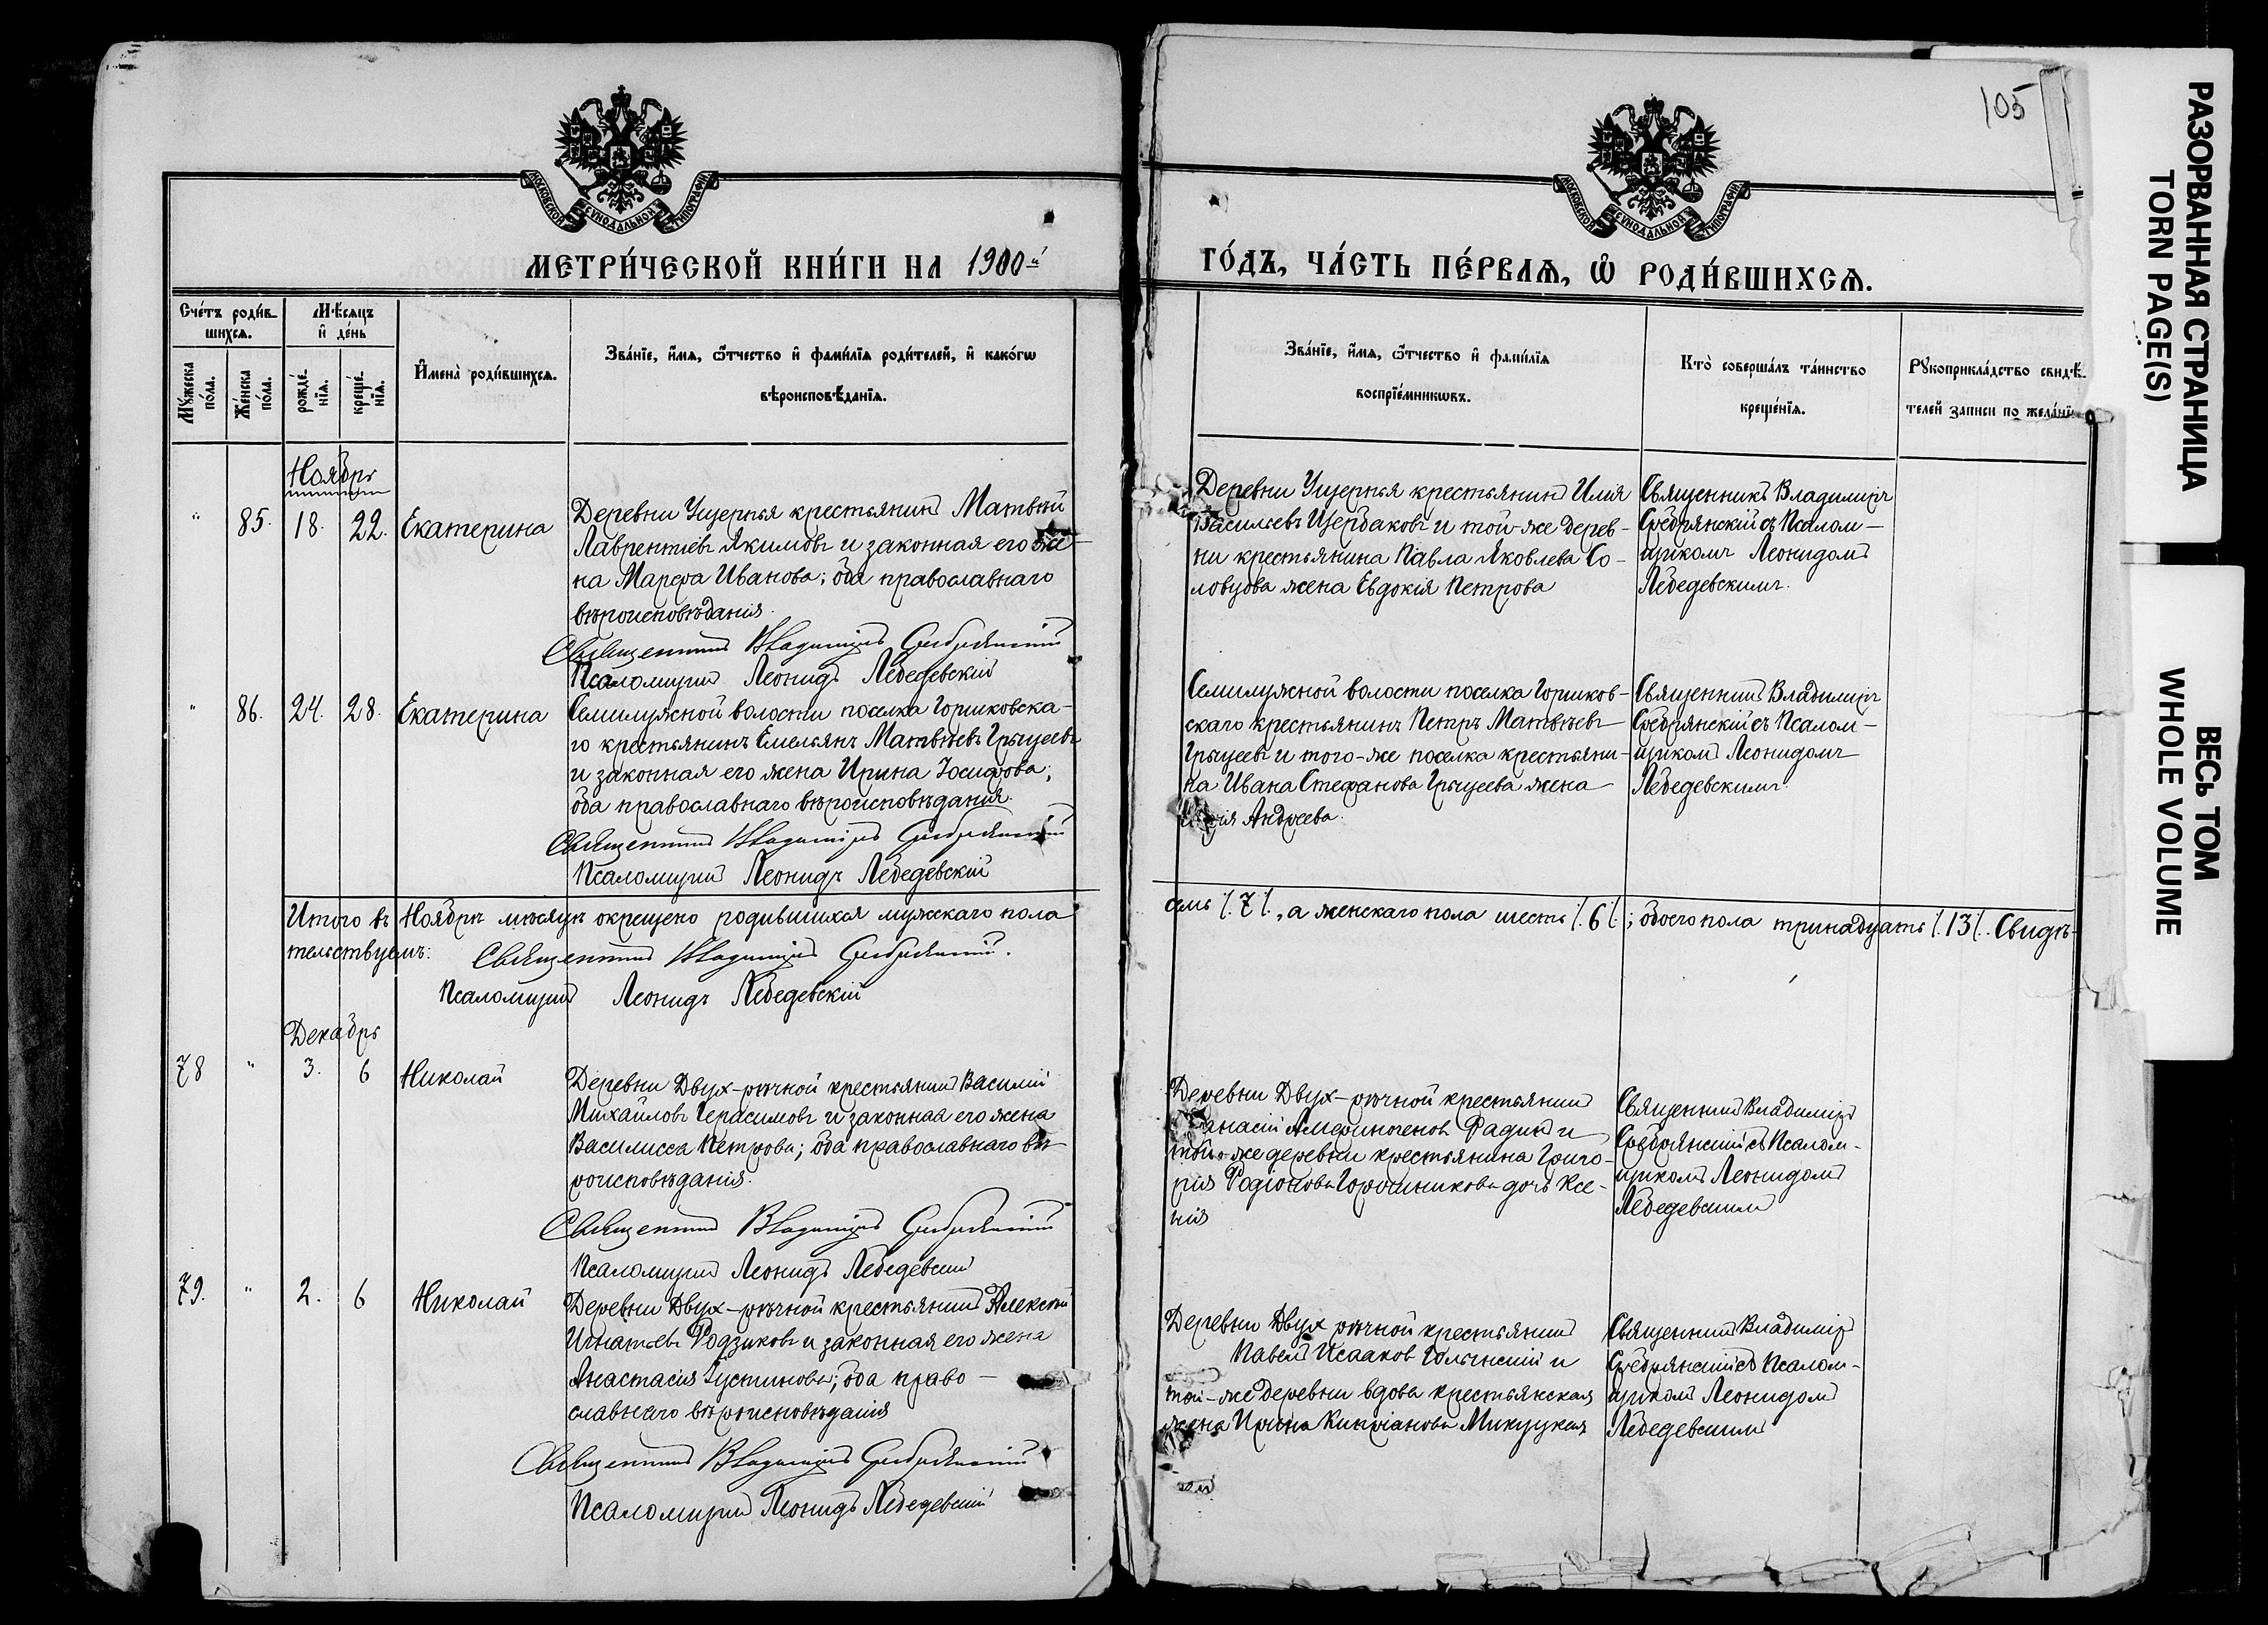 105
МОСКОВСКОЙ СѴНОДАЛЬНОЙ ТИПОГРАФІИ
МОСКОВСКОЙ СѴНОДАЛЬНОЙ ТИПОГРАФІИ
МЕТРИ́ЧЕСКОЙ КНИ́ГИ НА 1900-й
ГО́ДЪ, ЧА́СТЬ ПЕ́РВАѦ, Ѽ РОДИ́ВШИХСѦ.
Сче́тъ роди́в-
шихсѧ.
Мꙋ́жеска по́ла.
Же́нска по́ла.
Мѣ́сѧцъ
и҆ де́нь
рожде́-
нїѧ.
креще́-
нїѧ.
И҆мена̀ роди́вшихсѧ.
Зва́нїе, и҆́мѧ, ѻ҆́тчество и҆ фами́лїѧ роди́телей, и҆ како́гѡ
вѣроисповѣ́данїѧ.
Зва́нїе, и҆́мѧ, ѻ҆́тчество и҆ фами́лїѧ
воспрїе́мникѡвъ.
Кто̀ соверша́лъ та́инство
креще́нїѧ.
Рꙋкоприкла́дство свидѣ́-
телей записи по жела́нї
Ноябрь
" 85. 18. 22. Екатерина
Деревни Ущерпья крестьянинъ Матвѣй
Лаврентіевъ Якимовъ и законная его же-
на Марфа Иванова; оба православнаго
вѣроисповѣданія.
Священникъ Владиміръ Сребрянскій
Псаломщикъ Леонидъ Лебедевскій
Деревни Ущерпья крестьянинъ Илія
Васильевъ Щербаковъ и той-же дерев-
ни крестьянина Павла Яковлева Со-
ловцова жена Евдокія Петрова
Священникъ Владиміръ
Сребрянскій съ Псалом-
щикомъ Леонидомъ
Лебедевскимъ.
" 86. 24. 28. Екатерина
Семилужной волости поселка Горшковска-
го крестьянинъ Емельянъ Матвѣевъ
и законная его жена Ирина Іосифова;
оба православнаго вѣроисповѣданія.
Священникъ Владиміръ Сребрянскій
Псаломщикъ Леонидъ Лебедевскій
Семилужной волости поселка Горшков-
скаго крестьянинъ Петръ Матвѣевъ
и того-же поселка крестьяни-
на Ивана Стефанова жена
Андреева.
Священникъ Владиміръ
Сребрянскій съ Псалом-
щикомъ Леонидомъ
Лебедевскимъ.
Итого въ Ноябрѣ мѣсяцѣ окрещено родившихся мужскаго пола
семь /.7/., а женскаго пола шесть /.6/.; обоего пола тринадцать /.13/. Свидѣ-
тельствуемъ:
Священникъ Владиміръ Сребрянскій.
Псаломщикъ Леонидъ Лебедевскій
Декабрь
78 " 3. 6 Николай
Деревни Двух-рѣчной крестьянинъ Василій
Михайловъ Герасимовъ и законная его жена
Василисса Петрова; оба православнаго вѣ-
роисповѣданія.
Священникъ Владиміръ Сребрянскій
Псаломщикъ Леонидъ Лебедевскій
Деревни Двух-рѣчной крестьянинъ
Амфиногеновъ Фадинъ и
той-же деревни крестьянина Григо-
рія Родіонова дочь Ксе-
нія
Священникъ Владиміръ
Сребрянскій съ Псалом-
щикомъ Леонидомъ
Лебедевскимъ
79. " 2. 6 Николай
Деревни Двух-рѣчной крестьянинъ Алексѣй
Игнатьевъ Родзиковъ и законная его жена
Анастасія Іустинова; оба право-
славнаго вѣроисповѣданія
Священникъ Владиміръ Сребрянскій
Псаломщикъ Леонидъ Лебедевскій
Деревни Двух рѣчной крестьянинъ
Павелъ Исааковъ и
той-же деревни вдова крестьянская
жена Ирина Кипріанова Микуцкая
Священникъ Владиміръ
Сребрянскій съ Псалом-
щикомъ Леонидомъ
Лебедевскимъ
РАЗОРВАННАЯ СТРАНИЦА
TORN PAGE(S)
ВЕСЬ ТОМ
WHOLE VOLUME